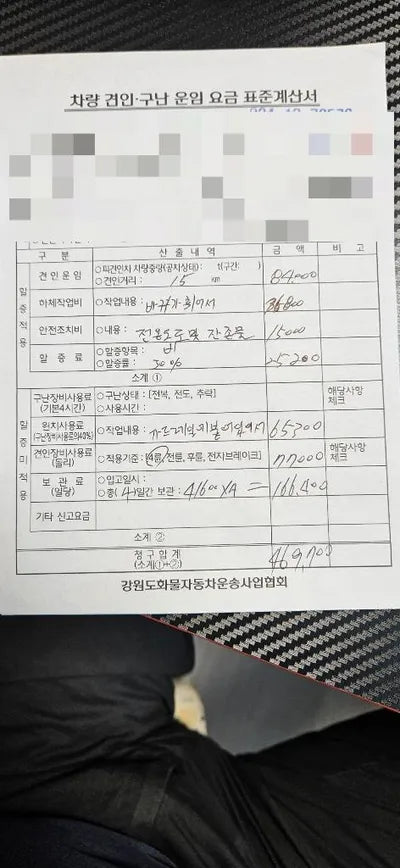 차량 견인·구난 운임 요금 표준계산서
구 분 산 출 내 역 금 액 비 고
할증적용
견인운임 ○피견인차 차량중량(공차상태): t(구간: )
○견인거리: 15 km 84.000
하체작업비 ○작업내용: 바퀴가 휘어서 36800
안전조치비 ○내용: 전용도로및 잔존물 15000
할 증 료 ○할증항목: 비
○할증률: 30% 25200
소계 ①
할증미적용
구난장비사용료
(기본4시간) ○구난상태: [전복, 전도, 추락]
○사용시간: 해당사항
체크
윈치사용료
(구난장비사용료의40%) ○작업내용: 65300
견인장비사용료
(돌리) ○적용기준: [4륜, 전륜, 후륜, 전자브레이크] 77000 해당사항
체크
보 관 료
(일당) ○입고일시:
○총( 4 )일간 보관: 41600 X4 = 166,400
기타 신고요금
소계 ②
청구 합계
(소계①+②) 469,700
강원도화물자동차운송사업협회